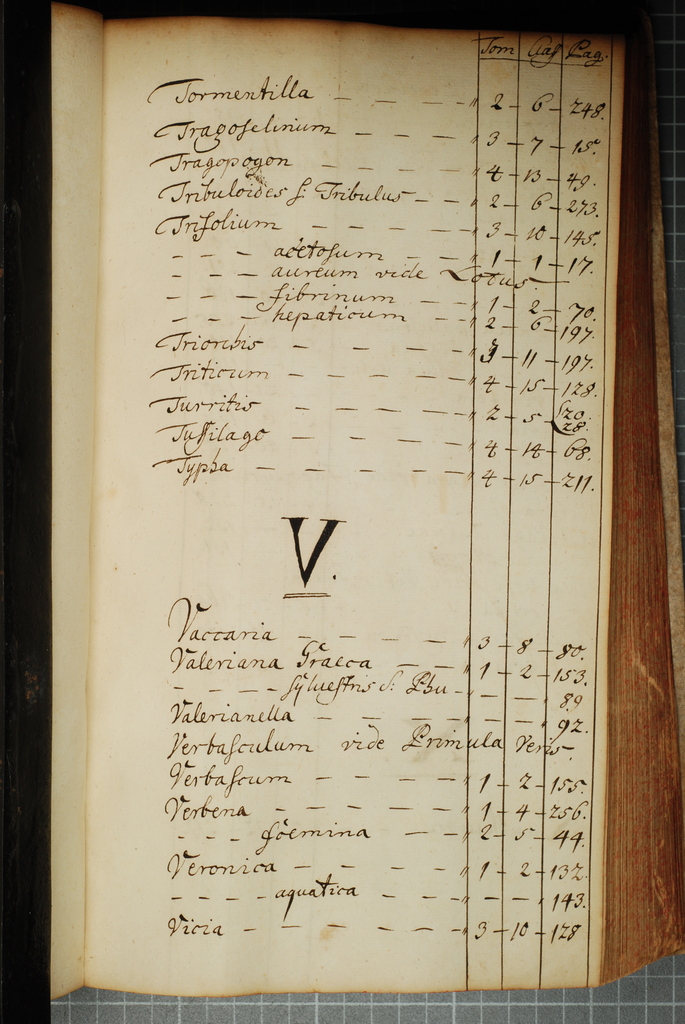 Tom Claſ Pag.
Tormentilla — — — — " 2 — 6 — 248.
Tragoselinum — — — — " 3 — 7 — 15.
Tragopogon — — — — 4 — 13 — 49.
Tribuloides ſ: Tribulus — — " 2 — 6 — 273.
Trifolium — — — — " 3 — 10 — 145.
— — — acetosum — — " 1 — 1 — 17.
— — — aureum vide Lotus —
— — — fibrinum — — 1 — 2 — 70.
— — — hepaticum — — " 2 — 6 — 197.
Triorchis — — — — " 3 — 11 — 197.
Triticum — — — — " 4 — 15 — 128.
Turritis — — — — " 2 — 5 {20. 28.
Tuſsilago — — — — " 4 — 14 — 68.
Typha — — — — — " 4 — 15 — 211.
V.
Vaccaria — — — — " 3 — 8 — 80.
Valeriana Graeca — — " 1 — 2 — 153.
— — — sylvestris S: Phu — " — — " 89
Valerianella — — — — " — — " 92.
Verbasculum vide Primula Veris.
Verbascum — — — — " 1 — 2 — 155.
Verbena — — — — " 1 — 4 — 256.
— — — foemina — — " 2 — 5 — 44.
Veronica — — — — " 1 — 2 — 132.
— — — — aquatica — — — " — — 143.
Vicia — — — — — " 3 — 10 — 178